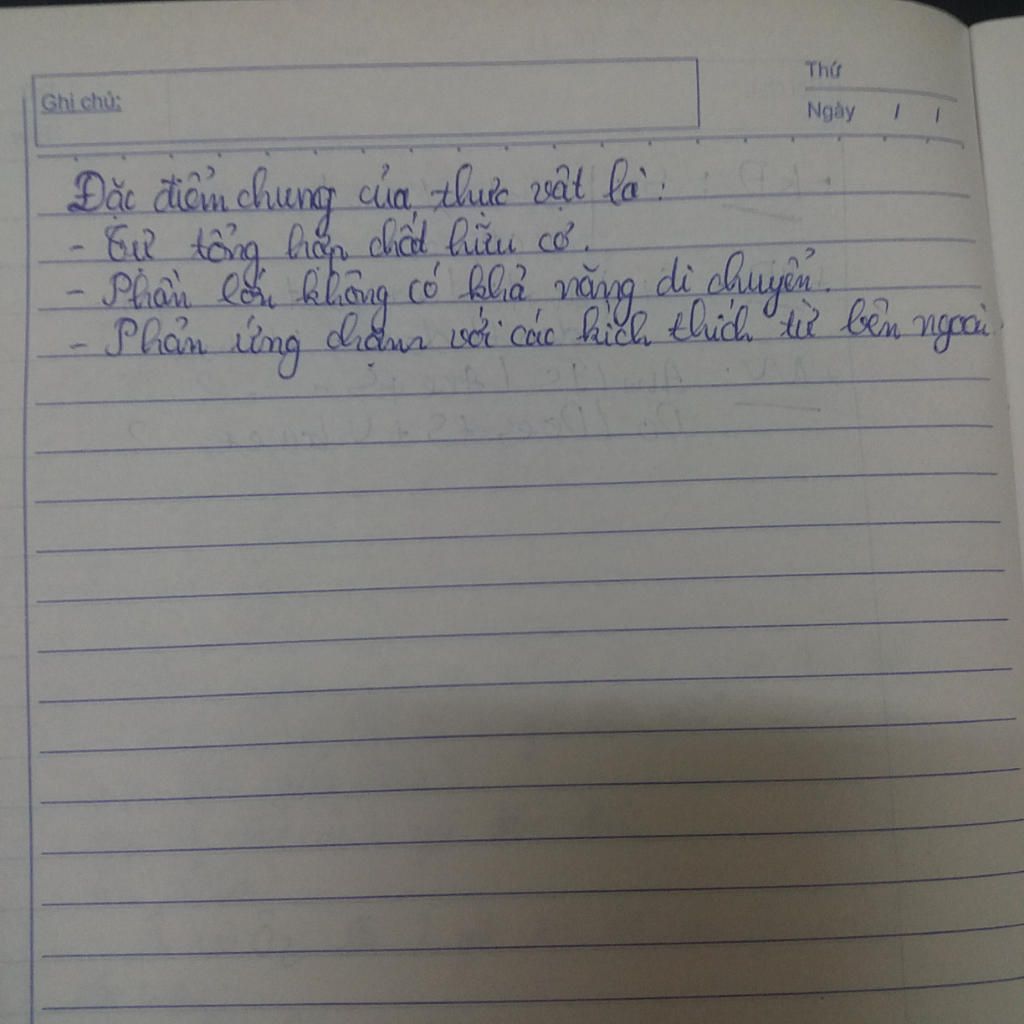 Thứ
Ghi chú:
Ngày / /
Đặc điểm chung của thực vật là:
- Tự tổng hợp chất hữu cơ.
- Phần lớn không có khả năng di chuyển.
- Phản ứng chậm với các kích thích từ bên ngoài